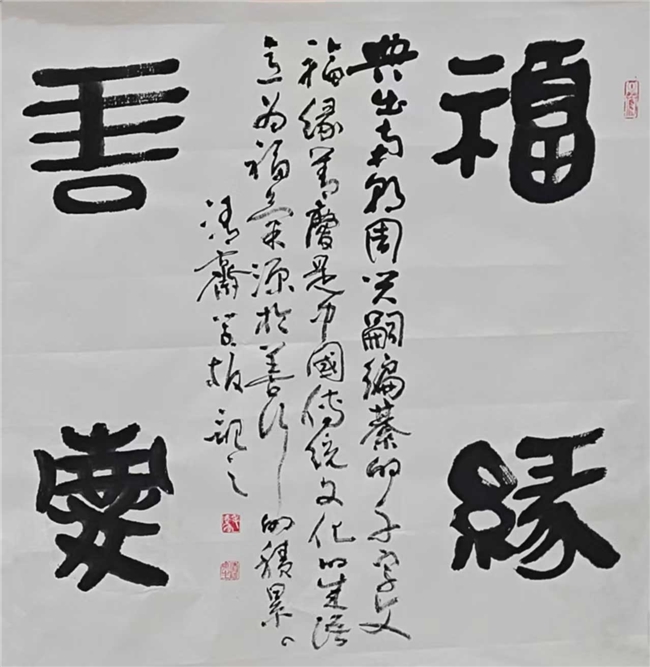 福
緣
善
慶
典出南朝周兴嗣編纂的千字文
福緣善慶是中國傳統文化的成语
意为福气来源於善行的積累。
清齋